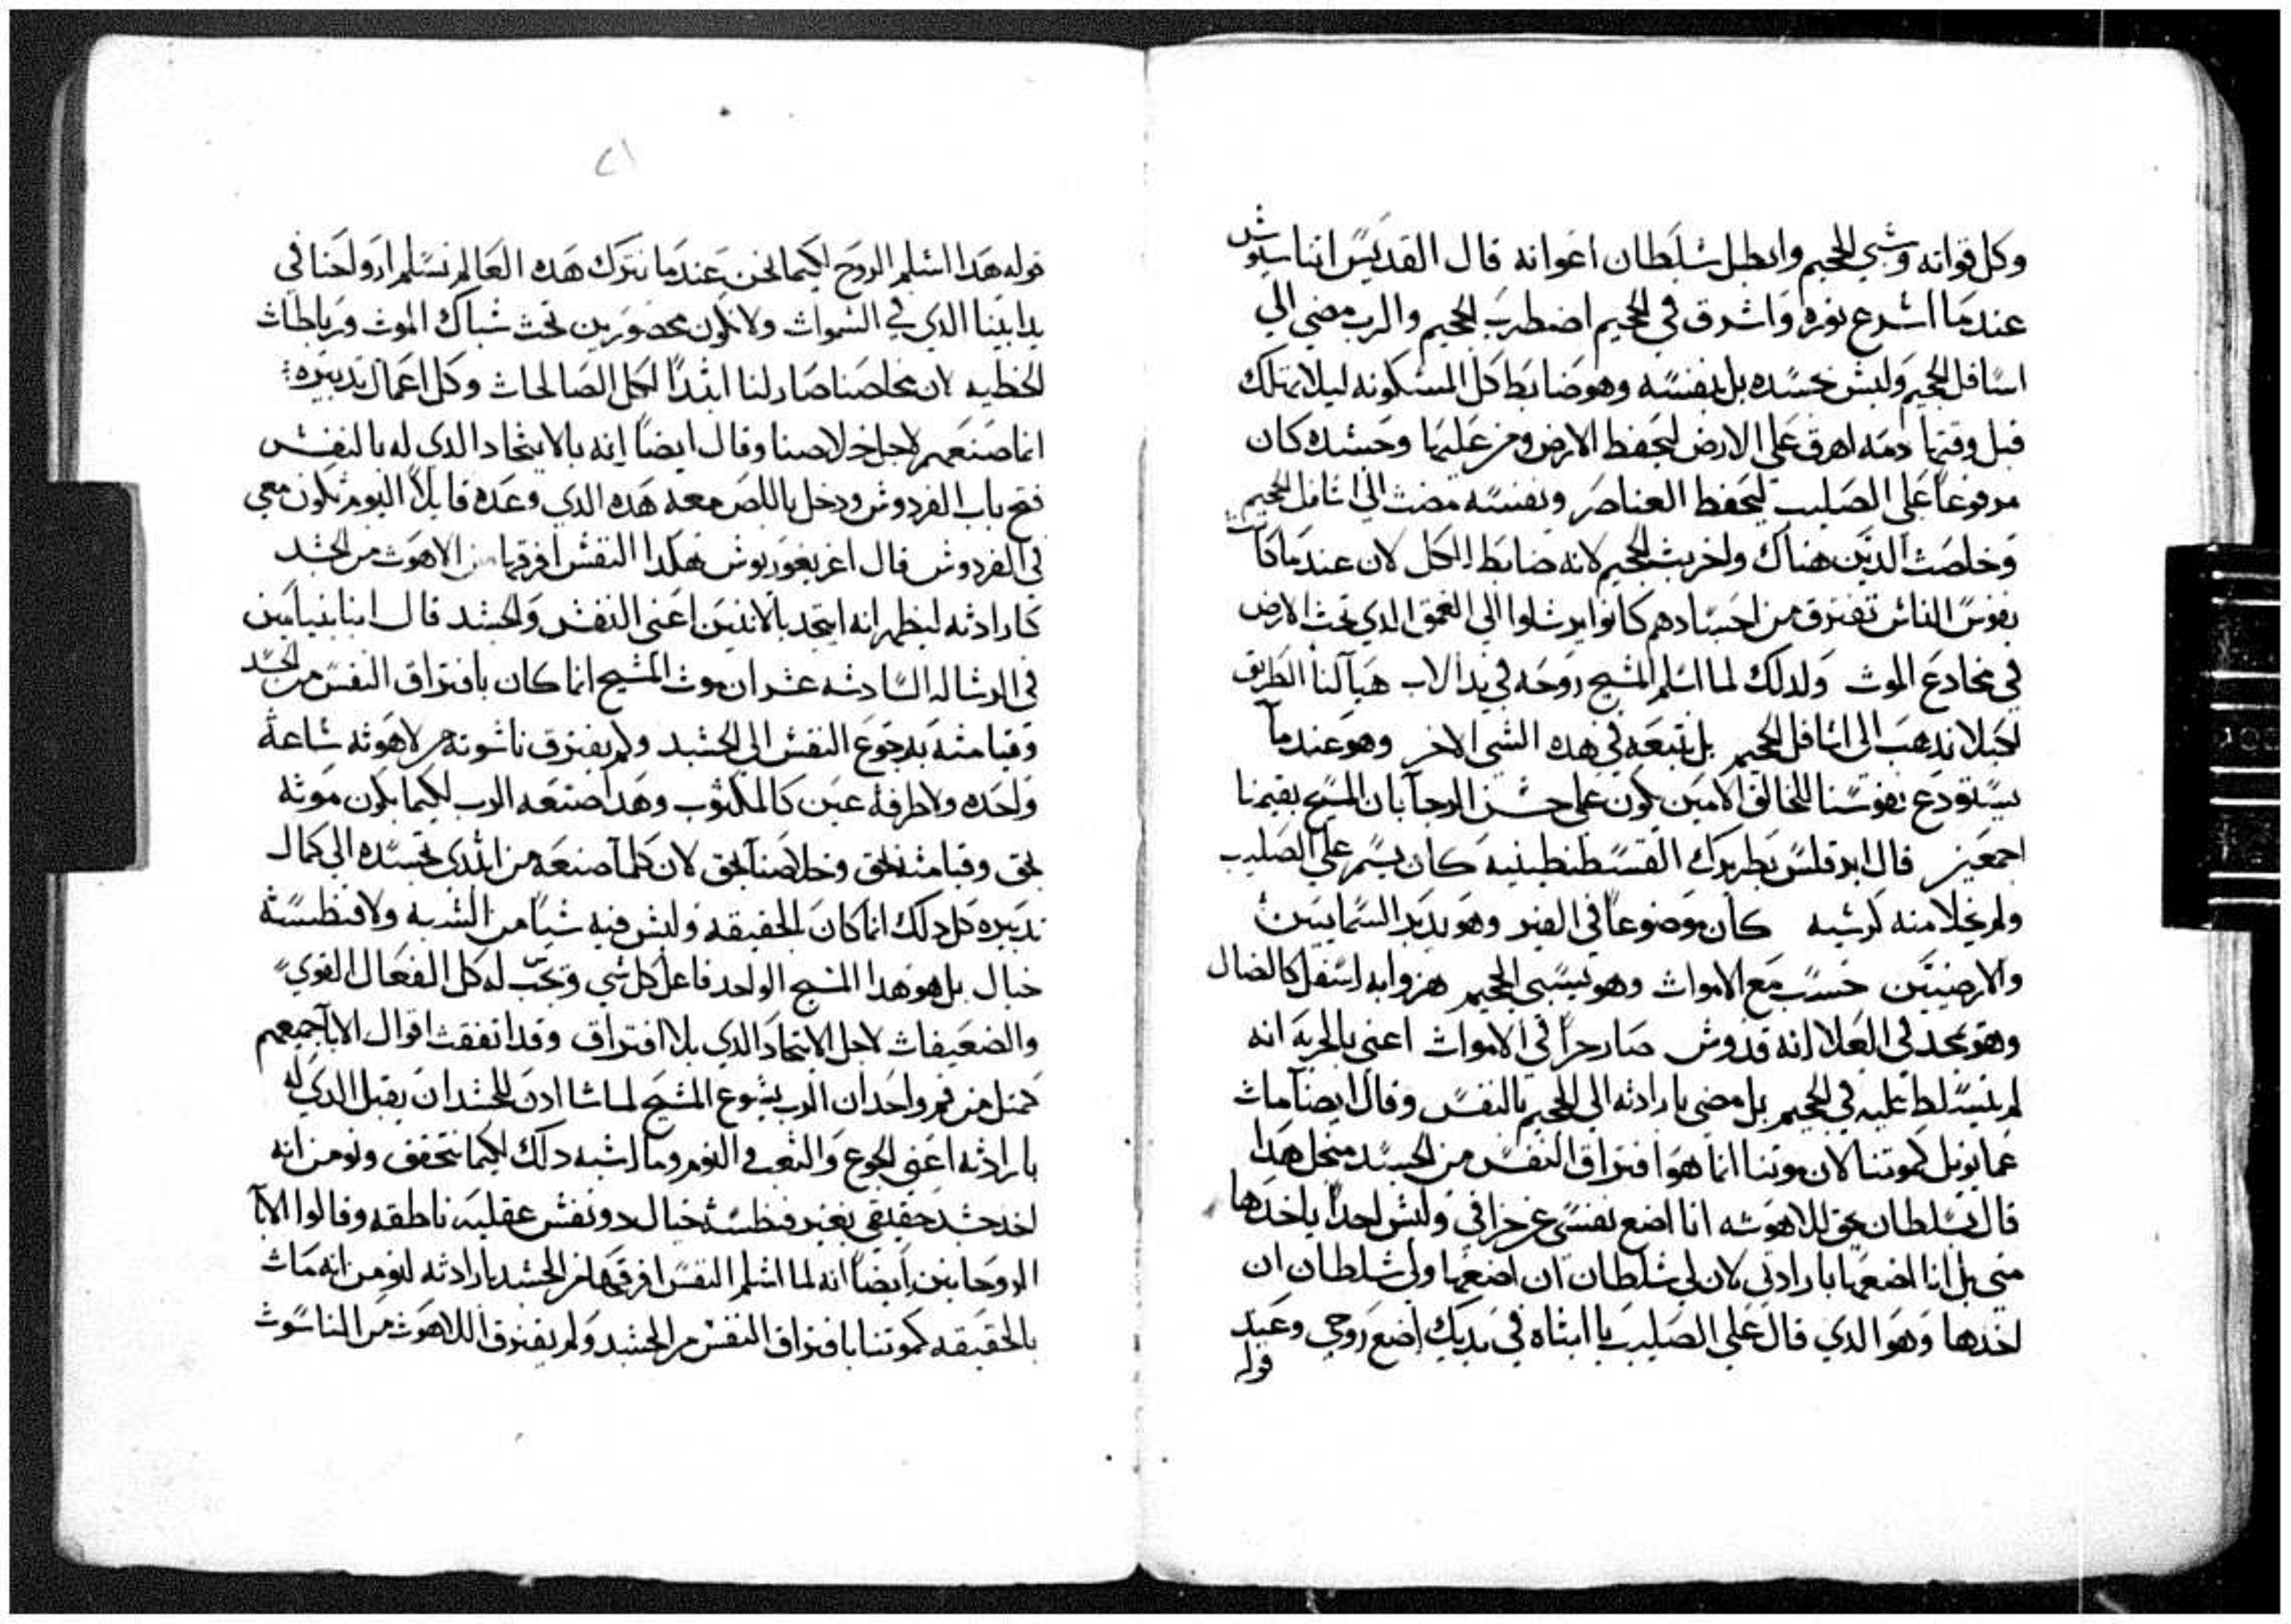 وكل قواته وسبي الجحيم وابطل سلطان اعوانه قال القديس اتناسيوس
عندما اشرع نوره واشرق في الجحيم اضطرب الجحيم والرب مضي الي
اسافل الجحيم وليس بجسده بل بنفسه وهو ضابط كل المسكونه ليلا تهلك
قبل وقتها دمه اهرق علي الارض ليحفظ الارض ومن عليها وجسده كان
مرفوعا علي الصليب ليحفظ العناصر ونفسه مضت الي اسافل الجحيم
وخلصت الدين هناك واخربت الجحيم لانه ضابط الكل لان عندما كانت
نفوس الناس تفترق من اجسادهم كانوا يرسلوا الي العمق الدي تحت الارض
في مخادع الموت ولدلك لما اسلم المسيح روحه في يد الاب هيا لنا الطريق
لكيلا ندهب الي اسافل الجحيم بل نتبعه في هده الشي الاخر وهو عندما
نستودع نفوسنا للخالق الامين نكون علي حسن الرجا بان المسيح يقيمنا
اجمعين قال ابرقلس بطريرك القسطنطينيه كان يسمر علي الصليب
ولم يخلا منه كرسيه كان موضوعا في القبر وهو يدبر السمايين
والارضيين حسب مع الاموات وهو يسبي الجحيم هزوا به اسفل كالضال
وهو يمجد في العلا انه قدوس صار حرا في الاموات اعني بالحريه انه
لم يتسلط عليه في الجحيم بل مضي بارادته الي الجحيم بالنفس وقال ايضا مات
عمانويل كموتنا لان موتنا انما هو افتراق النفس من الجسد من اجل هدا
قال بسلطان يحق للاهوته انا اضع نفسي عن خرافي وليس احدا ياخدها
مني بل انا اضعها بارادتي لان لي سلطان ان اضعها ولي سلطان ان
اخدها وهو الدي قال علي الصليب يا ابتاه في يديك اضع روحي وعند
قوله
٢١
قوله هدا اسلم الروح لكيما نحن عندما نترك هده العالم نسلم ارواحنا في
يد ابينا الدي في السموات ولا نكون محصورين تحت شباك الموت ورباطات
الخطيه لان مخلصنا صار لنا ابتدا لكل الصالحات وكل اعمال تدبيره
انما صنعهم لاجل خلاصنا وقال ايضا انه بالاتحاد الدي له بالنفس
فتح باب الفردوس ودخل باللص معه هده الدي وعده قايلا اليوم تكون معي
في الفردوس قال اغريغوريوس هكدا النفس افرقها من الاهوت من الجسد
كارادته ليظهر انه اتحد بالاتنين اعني النفس والجسد قال انبا بنيامين
في الرساله السادسه عشر ان موت المسيح انما كان بافتراق النفس من الجسد
وقيامته برجوع النفس الي الجسد ولم يفترق ناسوته من لاهوته ساعة
واحده ولا طرفة عين كالمكتوب وهدا صنعه الرب لكيما يكون موته
بحق وقيامته بحق وخلاصنا بحق لان كلما صنعه من ابتدي تجسده الي كمال
تدبيره كل دلك انما كان بالحقيقه وليس فيه شيا من الشبه ولا فنطسة
خيال بل هو هدا المسيح الواحد فاعل كل شي وتجب له كل الفعال القوي
والضعيفات لاجل الاتحاد الدي بلا افتراق وقد اتفقت اقوال الابا جميعهم
كمثل من فم واحد ان الرب يسوع المسيح لما شا ادن للجسد ان يقبل الدي له
بارادته اعني الجوع والتعب والنوم وما اشبه دلك لكيما نتحقق ونومن انه
اخد جسد حقيقي بغير فنطسة خيال دو نفس عقليه ناطقه وقالوا الابا
الروحانيين ايضا انه لما اسلم النفس افرقها من الجسد بارادته لنومن انه مات
بالحقيقه كموتنا بافتراق النفس من الجسد ولم يفترق اللاهوت من الناسوت